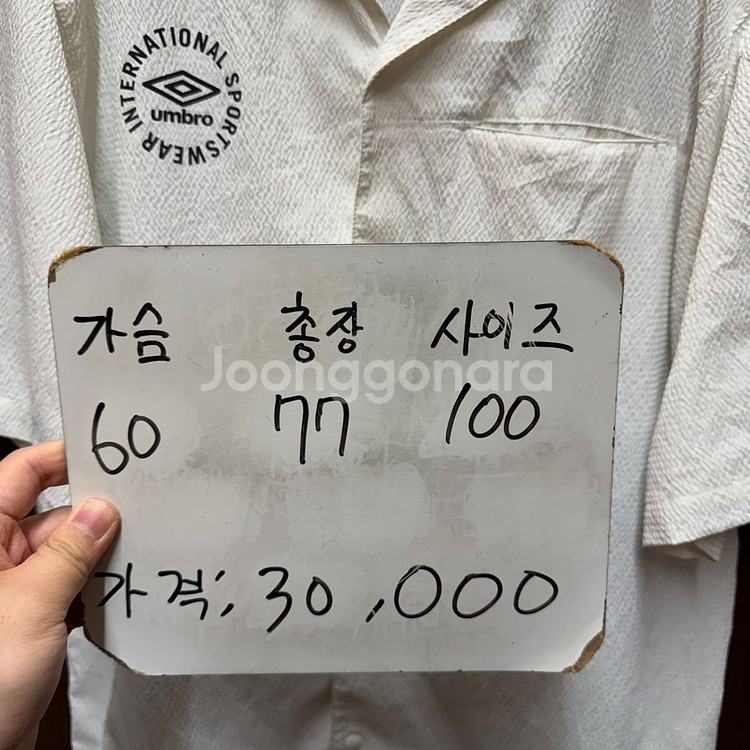 INTERNATIONAL SPORTSWEAR
umbro
가슴 총장 사이즈
Joonggonara
60 77 100
가격; 30,000